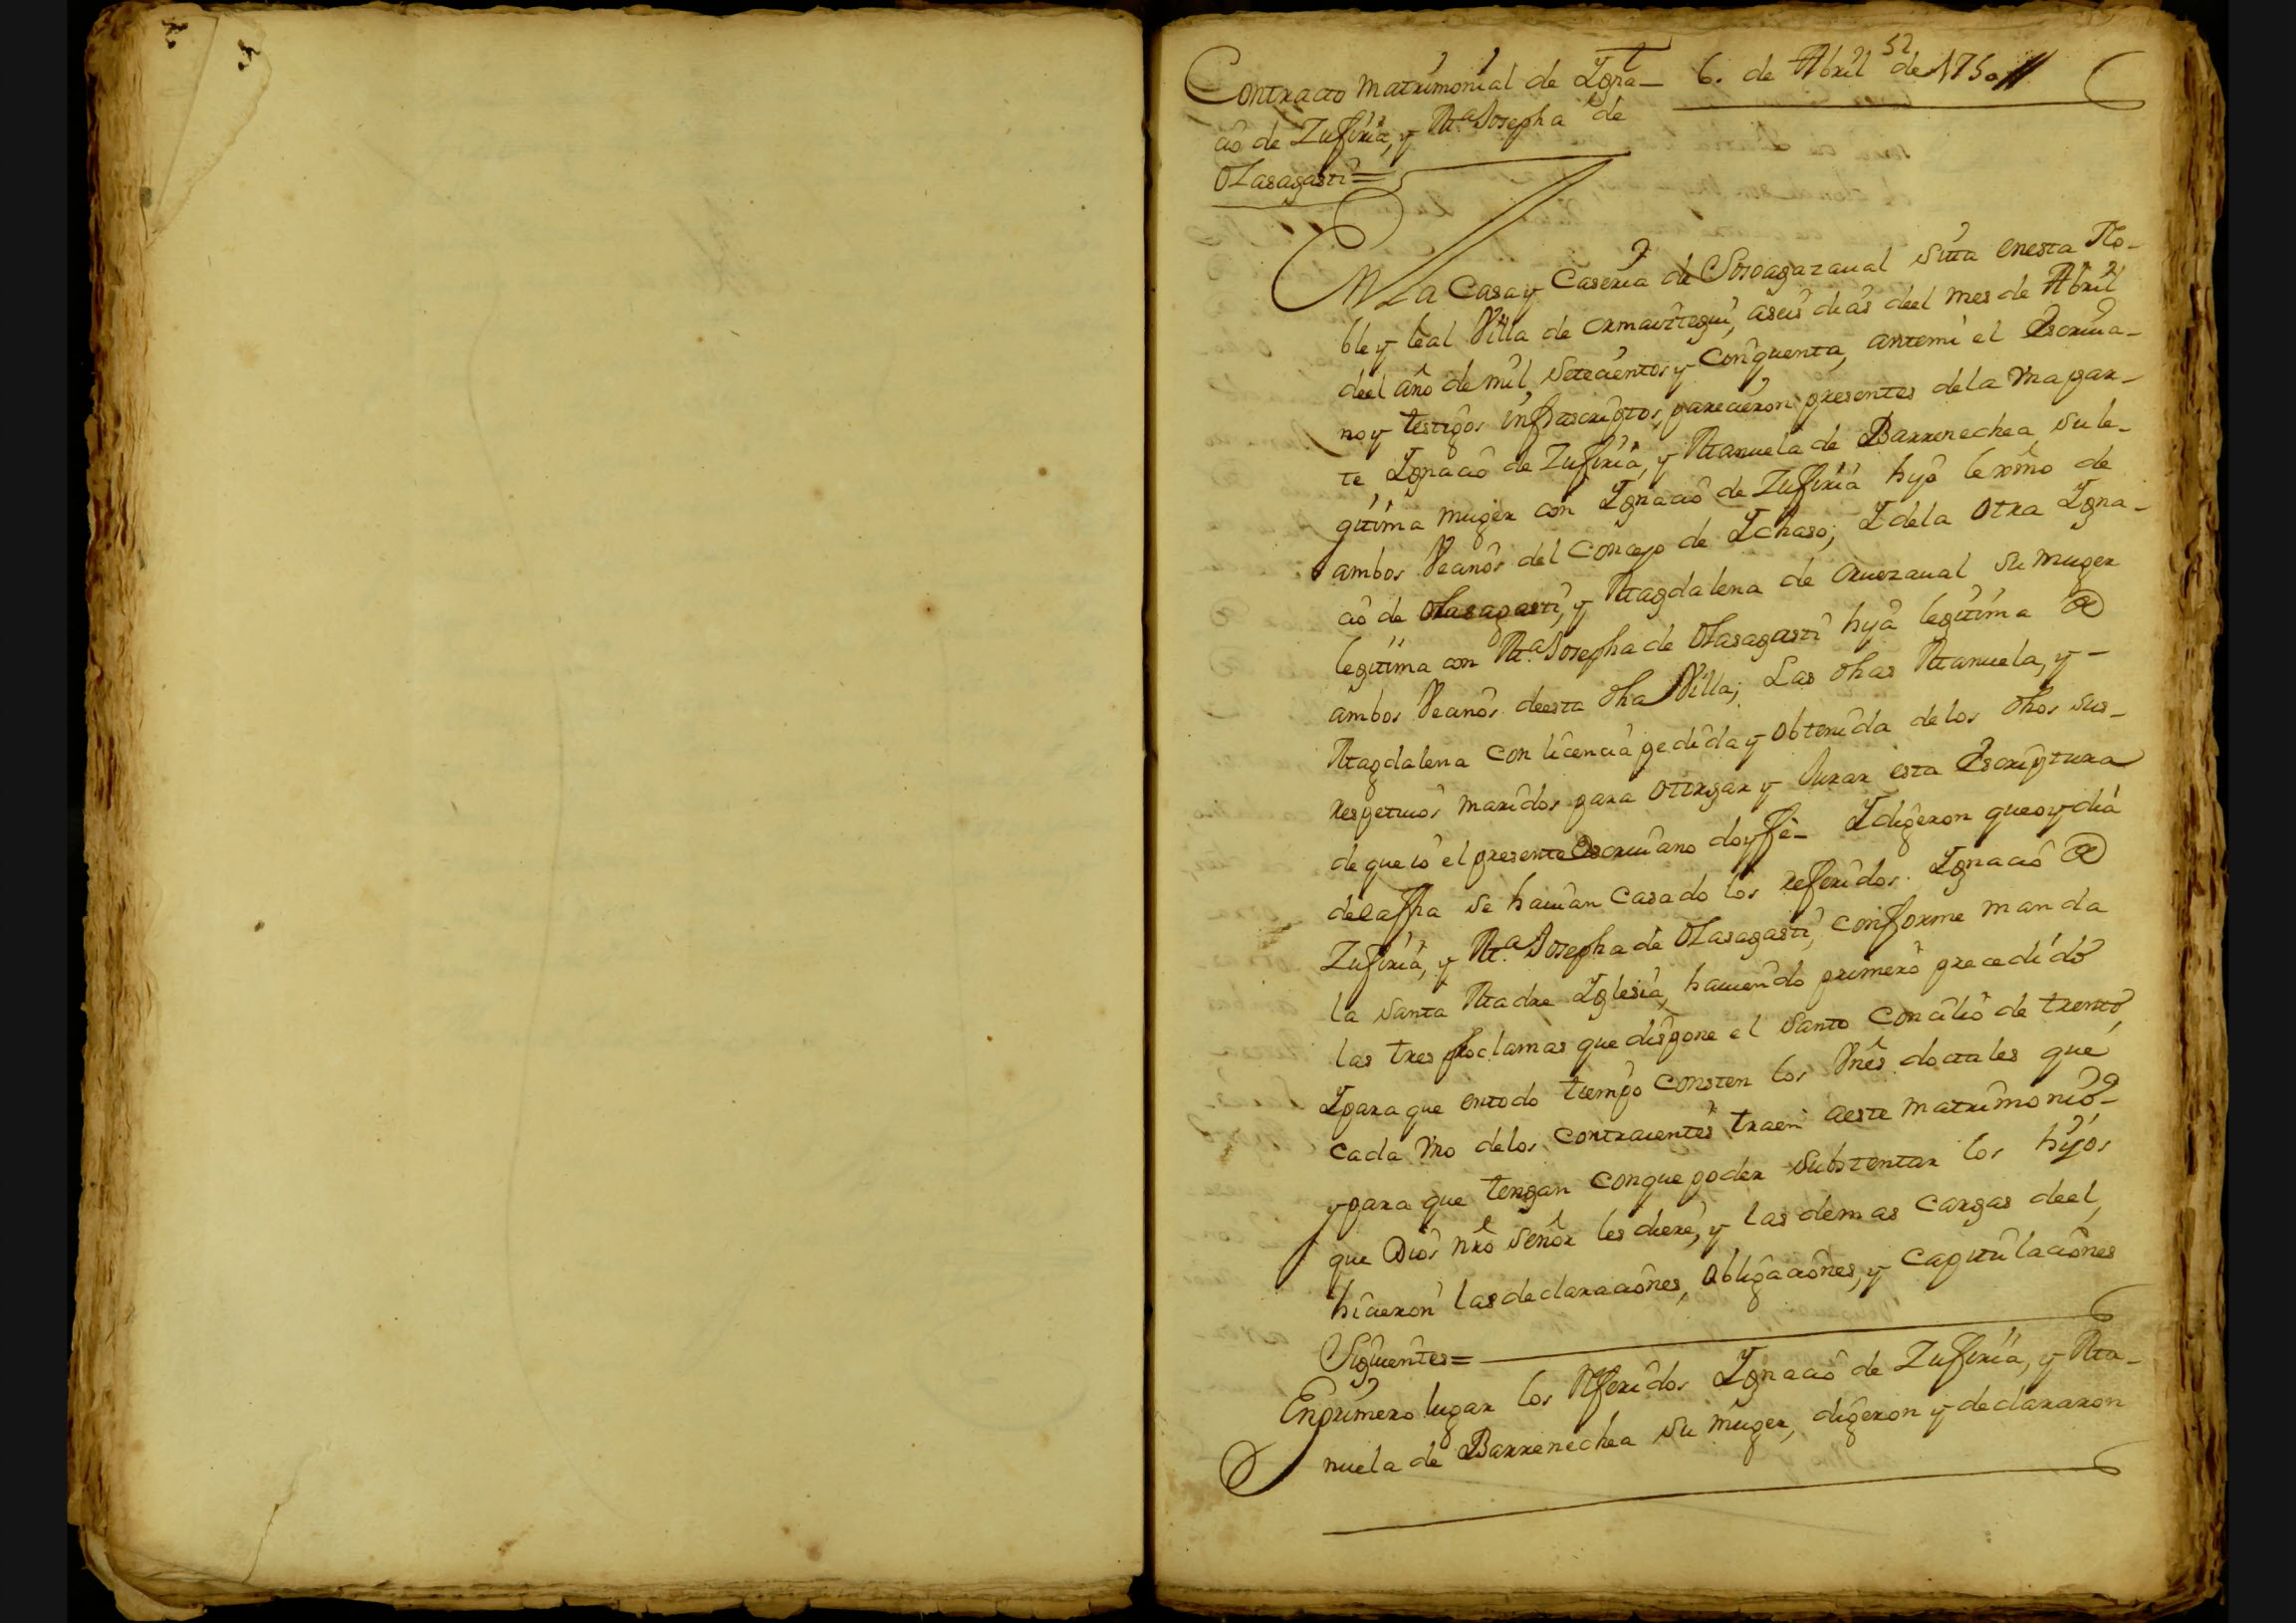 52
Contracto matrimonial de Ygna- 6. de Abril de 1750
cio de Zufiria, y Mª Josepha de
Olasagasti=
En La Casa y Caseria de Soroagazaual sitta enesta No-
ble y leal Villa de Ormaiztegui, aseis dias deel mes de Abril
deel año de mil, setecientos y Cinquenta, antemi el Escriua-
no y testigos infrascriptos, parecieron presentes dela vna par-
te Ygnacio de Zufiria, y Manuela de Barrenechea su le-
gitima muger con Ygnacio de Zufiria hijo lexmo de
ambos Vecinos del Concejo de Ychaso; Y dela otra Ygna-
cio de Olasagasti, y Magdalena de Oruezaual su muger
legitima con Mª Josepha de Olasagasti hija legitima de
ambos Vecinos deesta dha Villa; Las dhas Manuela, y-
Magdalena con licencia pedida y obtenida delos dhos sus-
respetiuos maridos para otorgar y Jurar esta Escriptura
de que io el presente Escriuano doyffe- Y digeron queoydia
delaffha se hauian Casado los referidos Ygnacio de
Zufiria, y Mª Josepha de Olasagasti, conforme manda
la santa Madre Yglesia, hauiendo primero precedido
las tres proclamas que dispone el santo Concilio de trento,
Y para que entodo tiempo consten los Vnes doctales que
cada vno delos contraientes traen aeste matrimonio-
y para que tengan conque poder substentar los hijos
que Dios nro señor les diere, y las demas cargas deel,
hicieron las declaraciones, obligaciones, y capitulaciones
Siguientes=
En primero lugar los Referidos Ygnacio de Zufiria, y Ma-
nuela de Barrenechea su muger, digeron y declararon